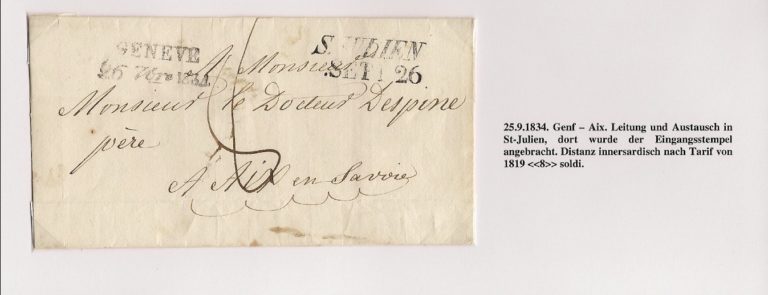 GENEVE
26 7bre 1834
S. JULIEN
SETT 26
A Monsieur
Monsieur le Docteur Despine
père
A Aix en Savoie
25.9.1834. Genf – Aix. Leitung und Austausch in
St-Julien, dort wurde der Eingangsstempel
angebracht. Distanz innersardisch nach Tarif von
1819 <<8>> soldi.